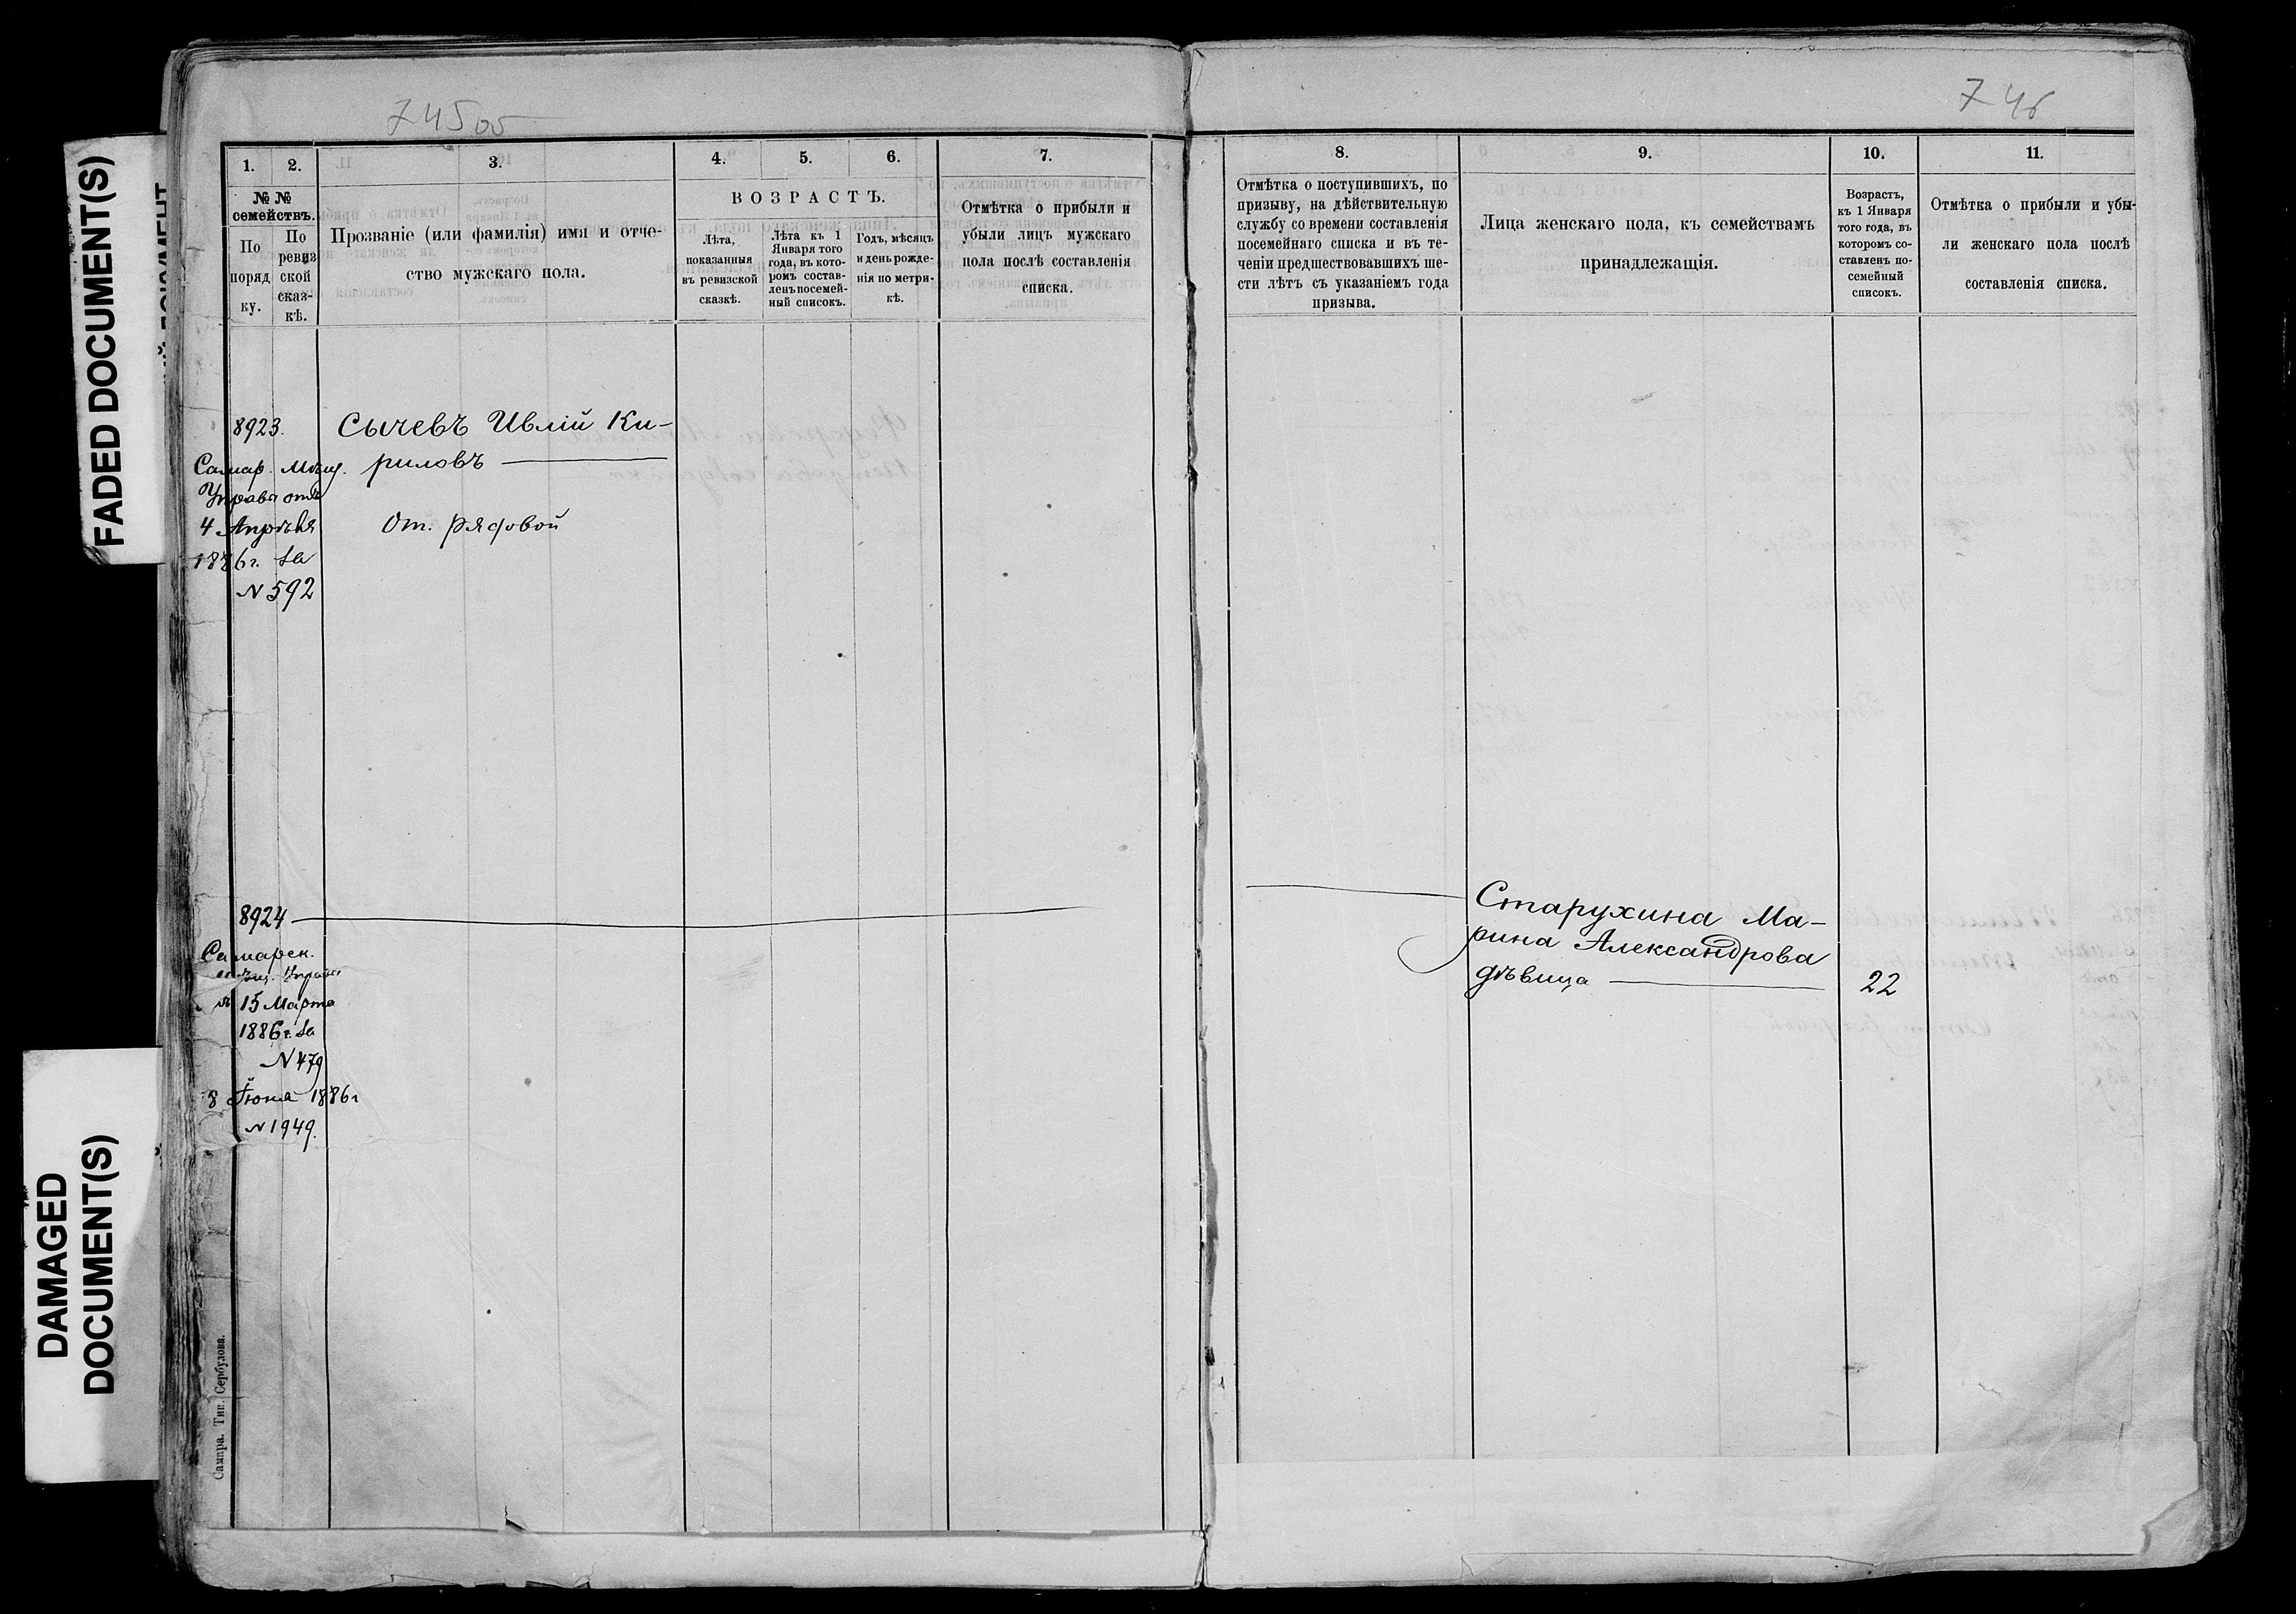 745об
746
FADED DOCUMENT(S)
DAMAGED
DOCUMENT(S)
1.
2.
3.
4.
5.
6.
7.
№ №
семействъ.
По
поряд
ку.
По
ревиз
ской
сказ-
кѣ.
Прозваніе (или фамилія) имя и отче-
ство мужскаго пола.
ВОЗРАСТЪ.
Лѣта,
показанныя
въ ревизской
сказкѣ.
Лѣта къ 1
Января того
года, въ кото-
ромъ состав-
ленъ посемей-
ный списокъ.
Годъ, мѣсяцъ
и день рожде-
нія по метри-
кѣ.
Отмѣтка о прибыли и
убыли лицъ мужскаго
пола послѣ составленія
списка.
8923.
Самар. Мѣщ.
Управа отъ
4 Апрѣля
1886 г. за
N 592
Сычевъ Ивлій Ки-
риловъ
От. рядовой
8924
Самарск.
Мѣщ. Управа
15 Марта
1886 г. за
N 479
8 Іюня 1886 г
N 1949.
Самара. Тип. Сербулова.
8.
9.
10.
11.
Отмѣтка о поступившихъ, по
призыву, на дѣйствительную
службу со времени составленія
посемейнаго списка и въ те-
ченіи предшествовавшихъ ше-
сти лѣтъ съ указаніемъ года
призыва.
Лица женскаго пола, къ семействамъ
принадлежащія.
Возрастъ,
къ 1 Января
того года, въ
которомъ со-
ставленъ по-
семейный
списокъ.
Отмѣтка о прибыли и убы-
ли женскаго пола послѣ
составленія списка.
Старухина Ма-
рина Александрова
дѣвица
22